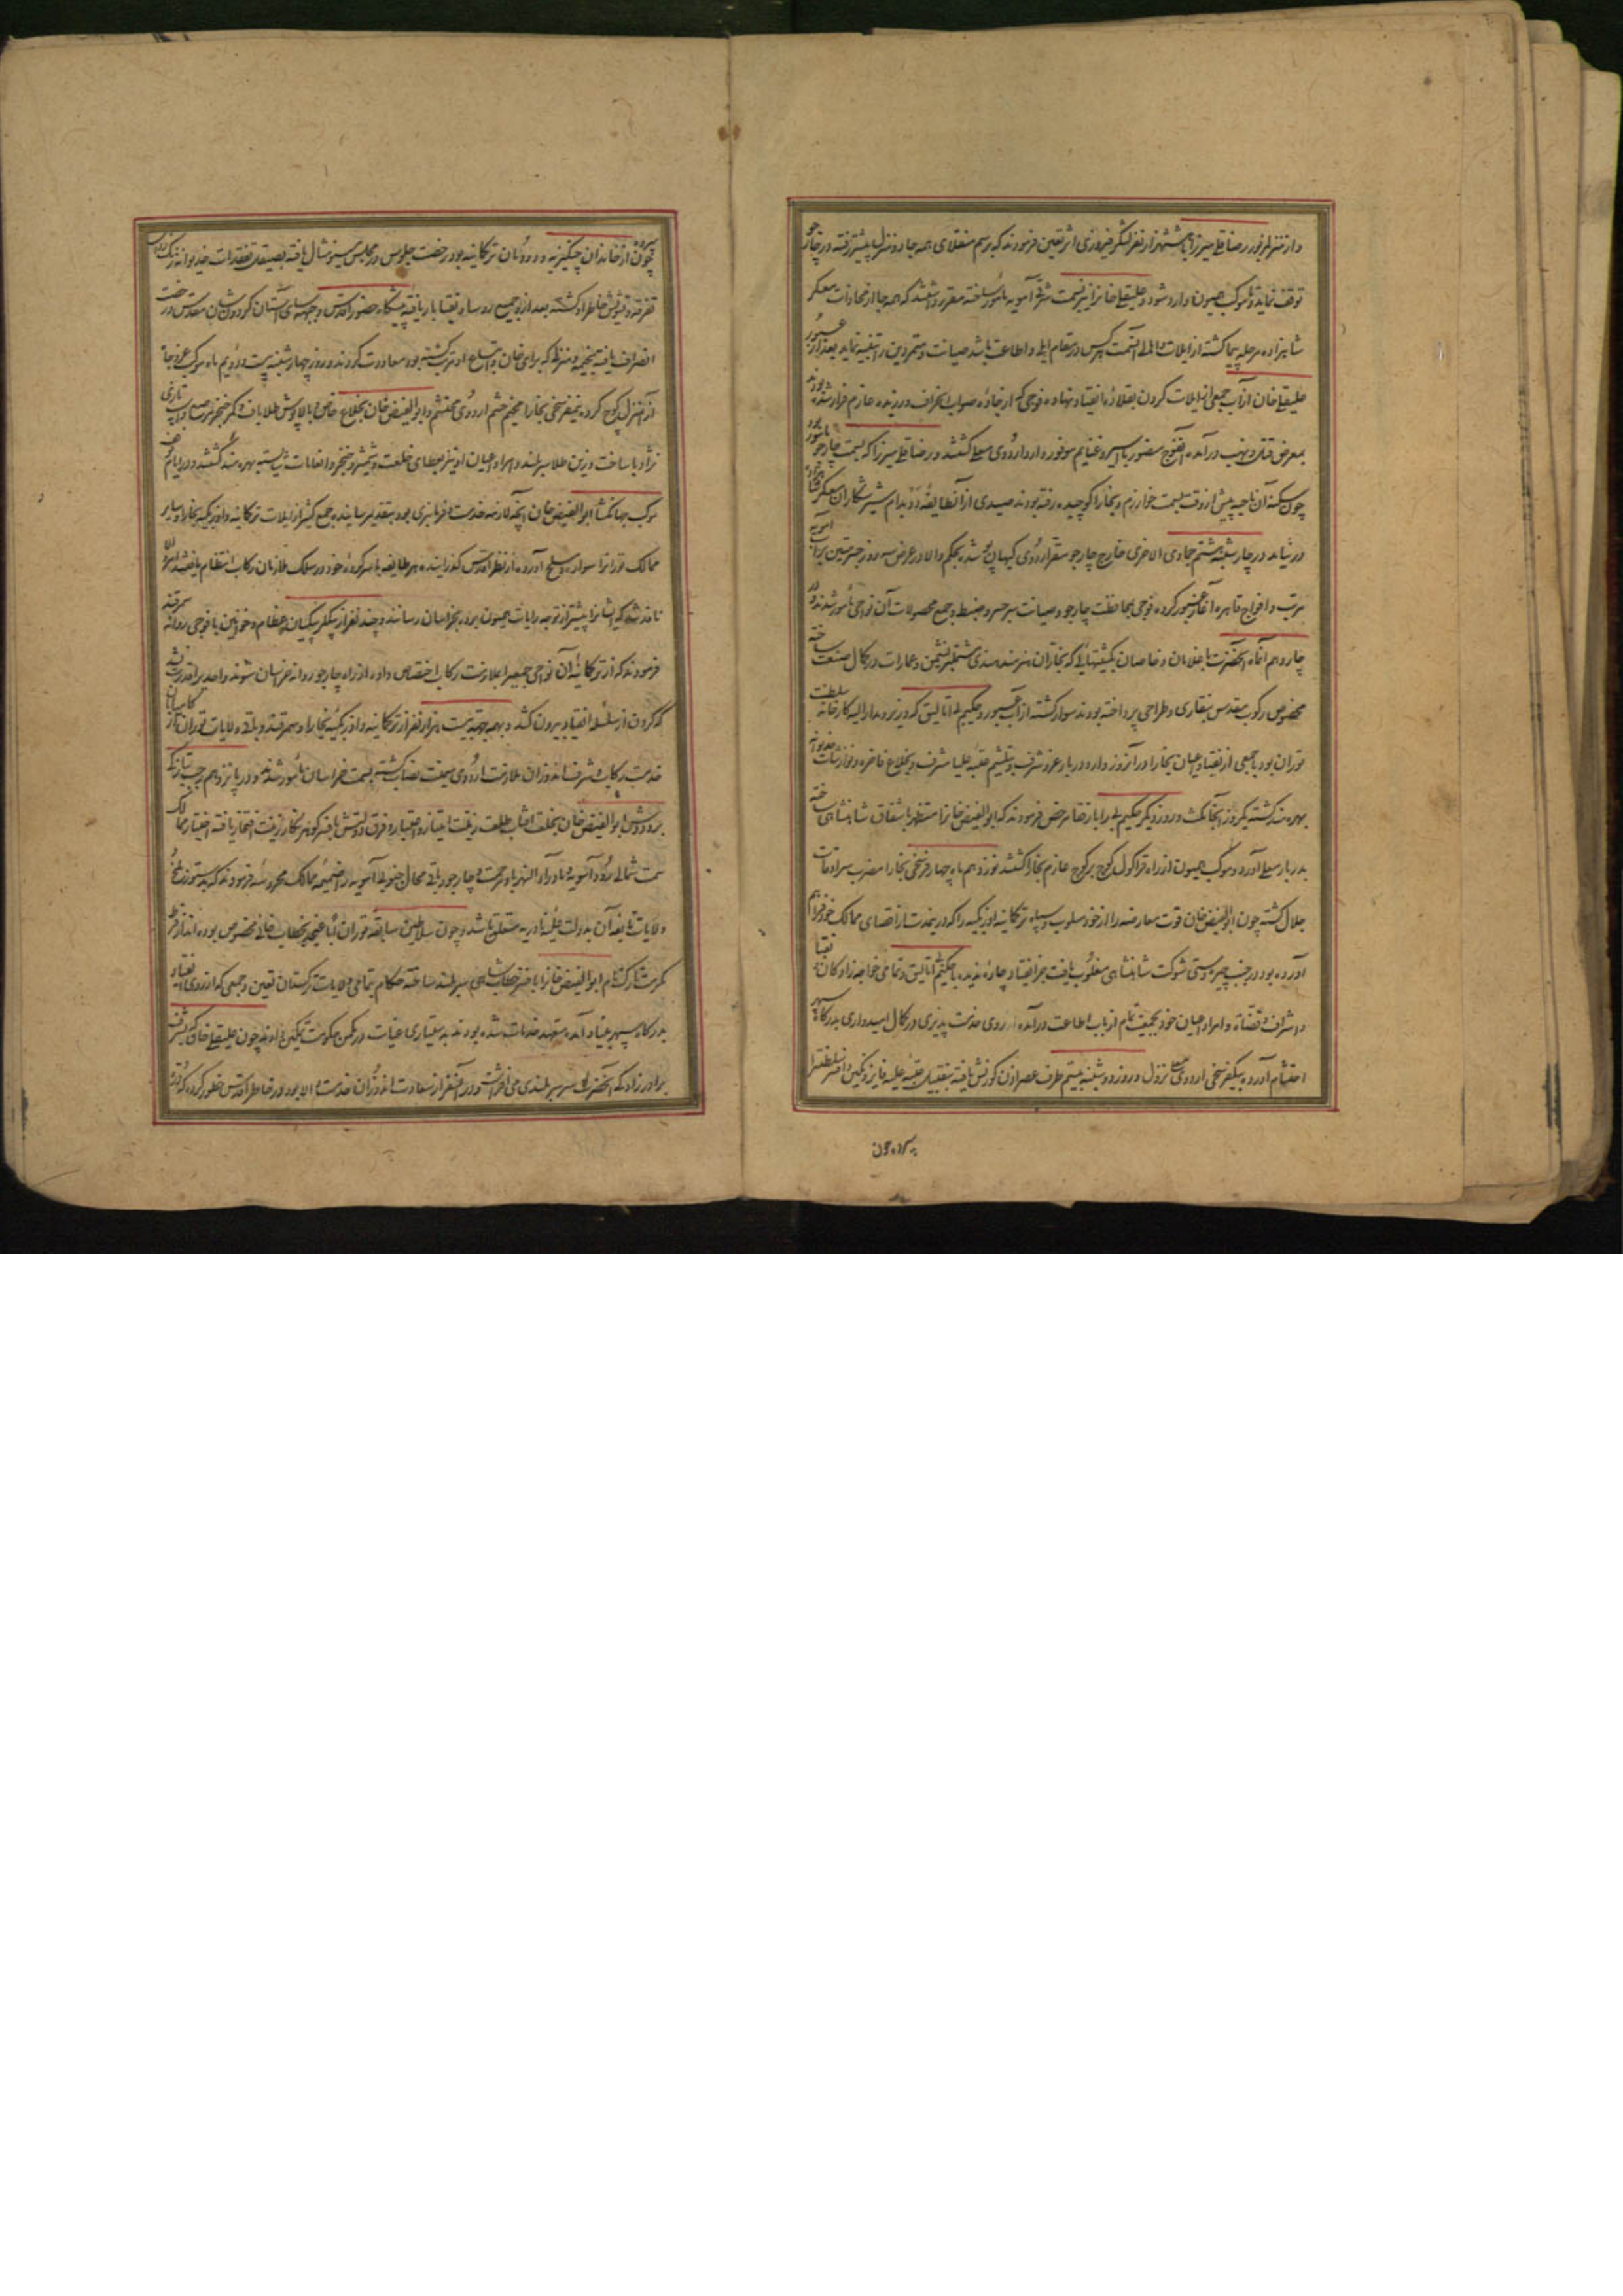 و از منزل مزبور رضاقلی میرزا با هشتهزار نفر لشکر فیروزی اثر تعین فرمودند که برسم منقلای همه جا دو منزل پیشتر رفته در چارجو
توقف نماید تا موکب همیون وارد شود و علیقلی خانرا نیز بسمت شرقی آمویه مأمور ساخته مقرر داشتند که همه جا از محاذات معسکر
شاهزاده مرحله پیما گشته از ایلات و اهالی آنسمت هر کس در مقام ایلی و اطاعت باشد صیانت و متمردین را تنبیه نماید بعد از عبور
علیقلی خان از آب جمعی از ایلات گردن بقلاده انقیاد نهاده فوجی که از جاده صواب انحراف ورزیده عازم فرار شده بودند
بمعرض قتل و نهب درآمده آنفوج منصور با اسیر و غنایم موفوره وارد اردوی معلی گشتند و رضاقلی میرزا که بسمت چارجو مأمور بود
چون سکنه آن ناحیه پیش از وقت بسمت خوارزم و بخارا کوچیده رفته بودند صیدی از آنطایفه بدام شیر شکاران معسکر
در نیامد در چارشنبه هشتم جمادی الاخری خارج چارجو مقر اردوی کیهان پو شده بحکم والا در عرض سه روز جسر متین بر آب آمویه
مرتب و افواج قاهره آغاز عبور کرده فوجی بمحافظت چارجو و صیانت سر جسر و ضبط و جمع محصولات آن نواحی مأمور شدند و روز
چاردهم آنماه آنحضرت با غلامان و خاصان بکشتیهائی که نجاران هنرمند هندی مشتمل بر نشیمن و عمارات در کمال صنعت ساخته
مخصوص رکوب مقدس بنقاری و طراحی پرداخته بودند سوار گشته از آب عبور و حکیم بی اتالیق که وزیر و مدار الیه کارخانه سلطنت
توران بود با جمعی از نقبا و اعیان بخارا در آنروز وارد دربار عز و شرف و بتلثیم عتبه علیا مشرف و بخلاع فاخره و نوازشات خدیوانه
بهره مند گشته یکروز آنجا مکث و روز دیگر حکیم بی را با رفقا مرخص فرمودند که ابوالفیض خانرا مستظهر باشفاق شاهنشاهی ساخته
بدربار معلی آورد و موکب همیون از راه قراکول کوچ بر کوچ عازم بخارا گشتند نوزدهم ماه چهار فرسخی بخارا مضرب سرادقات
جلال گشته چون ابوالفیض خان قوت معارضه را از خود مسلوب و سپاه ترکمانیه و اوزبکیه را که در یمدت از اقصای ممالک خود فراهم
آورده بود در جنب چیره دستی شوکت شاهنشاهی مغلوب یافت جز انقیاد چاره ندیده با حکیم اتالیق و تمامی خواجه زادکان و نقبا
و اشراف و قضاة و امراء و اعیان خود بجمیعت تمام از باب اطاعت درآمده از روی خدمت پذیری در کمال امیدواری بدرگاه سپهر
احتشام آورده بیکفرسخی اردوی معلی نزول و در روز دوشنبه بیستم طرف عصر اذن کورنش یافته بتقبیل عتبه علیه فایز و نگین و افسر سلطنترا
سپرده چون
سپرده چون از خاندان چنگیزیه و دودمان ترکمانیه بود رخصت جلوس در مجلس مینو مثال یافته بصیقل تفقدات خدیوانه زنگ
تفرقه و تشویش خاطر او گشته بعد از او جمیع روسا و نقبا بار یافته پیشگاه حضور اقدس و جبهه سای آستان گردون شان مقدس و رخصت
انصراف یافته بخیمه و منزلی که برای خان و اتباع او مرتب گشته بود معاودت کردند و روز چهارشنبه بیست و دویم ماه موکب عز و جاه
از آنمنزل کوچ کرده نیمفرسخی بخارا مخیم خیم اردوی محتشم و ابوالفیض خان بخلاع خاص و بالاپوش طلاباف و کمر خنجر مرصع و اسب تازی
نژاد با ساخت و زین طلا سر بلند و امرا و اعیان او نیز بعطای خلعت و شمشیر و خنجر و انعامات شایسته بهره مند گشتند و در ایام توقف
موکب جهانگشا ابوالفیض خان آنچه لازمه خدمت و فرمانبری بود بتقدیم رسانیده جمع کثیر از ایلات ترکمانیه و اوزبکیه بخارا و سایر
ممالک تورانرا سواره و مسلح آورده از نظر اقدس گذرانیده هر طایفه با سرکرده خود در سلک ملازمان رکاب انتظام یافتند
نافذ شد که ایشانرا پیشتر از توجه رایات همیون برده بخراسان رسانند و چند نفر از بیگلر بیگیان عظام و خوانین با فوجی روانه سمرقند
فرمودند که از ترکمانیه آن نواحی جمعیرا بملازمت رکاب اختصاص داده از راه چارجو روانه خراسان شوند و احدیرا قدرت نشد
که گردن از سلسله انقیاد بیرون کشد و بهمه جهة بیست هزار نفر از ترکمانیه و اوزبکیه بخارا و سمرقند و باقی ولایات توران کامیاب
خدمت رکاب شرف اندوزان ملازمت اردوی میمنت نصاب گشته بسمت خراسان مأمور شدند و در پانزدهم رجب تارک
بر و دوش ابوالفیض خان بخلعت آفتاب طلعت زینت امتیاز و اعتبار و فرق دولتش بافسر گوهر نگار زینت افتخار یافته اختیار ممالک
سمت شمالی رود آمویه و ماوراء النهر باو مرحمت و چارجو و باقی محال جنوبی آمویه را ضمیمه ممالک محروسه فرمودند که بدستور بلخ
ولایات مزبوره آن بدولت علیه نادریه متعلق باشد و چون سلاطین سابقه توران اباً عن جد بخطاب خانی مخصوص بوده اند از فرط
مکرمت تارک ابوالفیض خانرا بافسر خطاب شاهی سر بلند ساخته حکام بتمامی ولایات ترکستان تعین و جمعی که از روی انقیاد
بدرگاه سپهر بنیاد آمده متعهد خدمات شده بودند بدستیاری عنایات در مکمن حکومت تمکین دادند چون علیقلی خان که بشرف
برادر زادگی آنحضرت سر بر بلندی می افراشت و در آنسفر از سعادت اندوزان خدمت والا بود در خاطر اقدس خطور کرده که